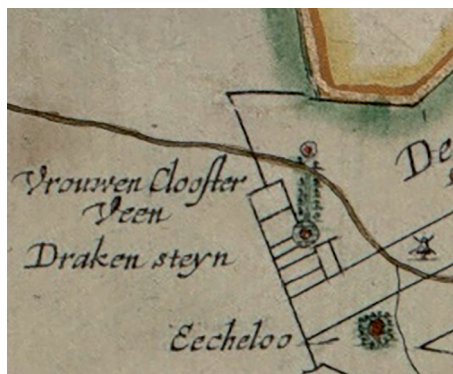 De
Vrouwen Clooster
Veen
Draken steyn
Eecheloo